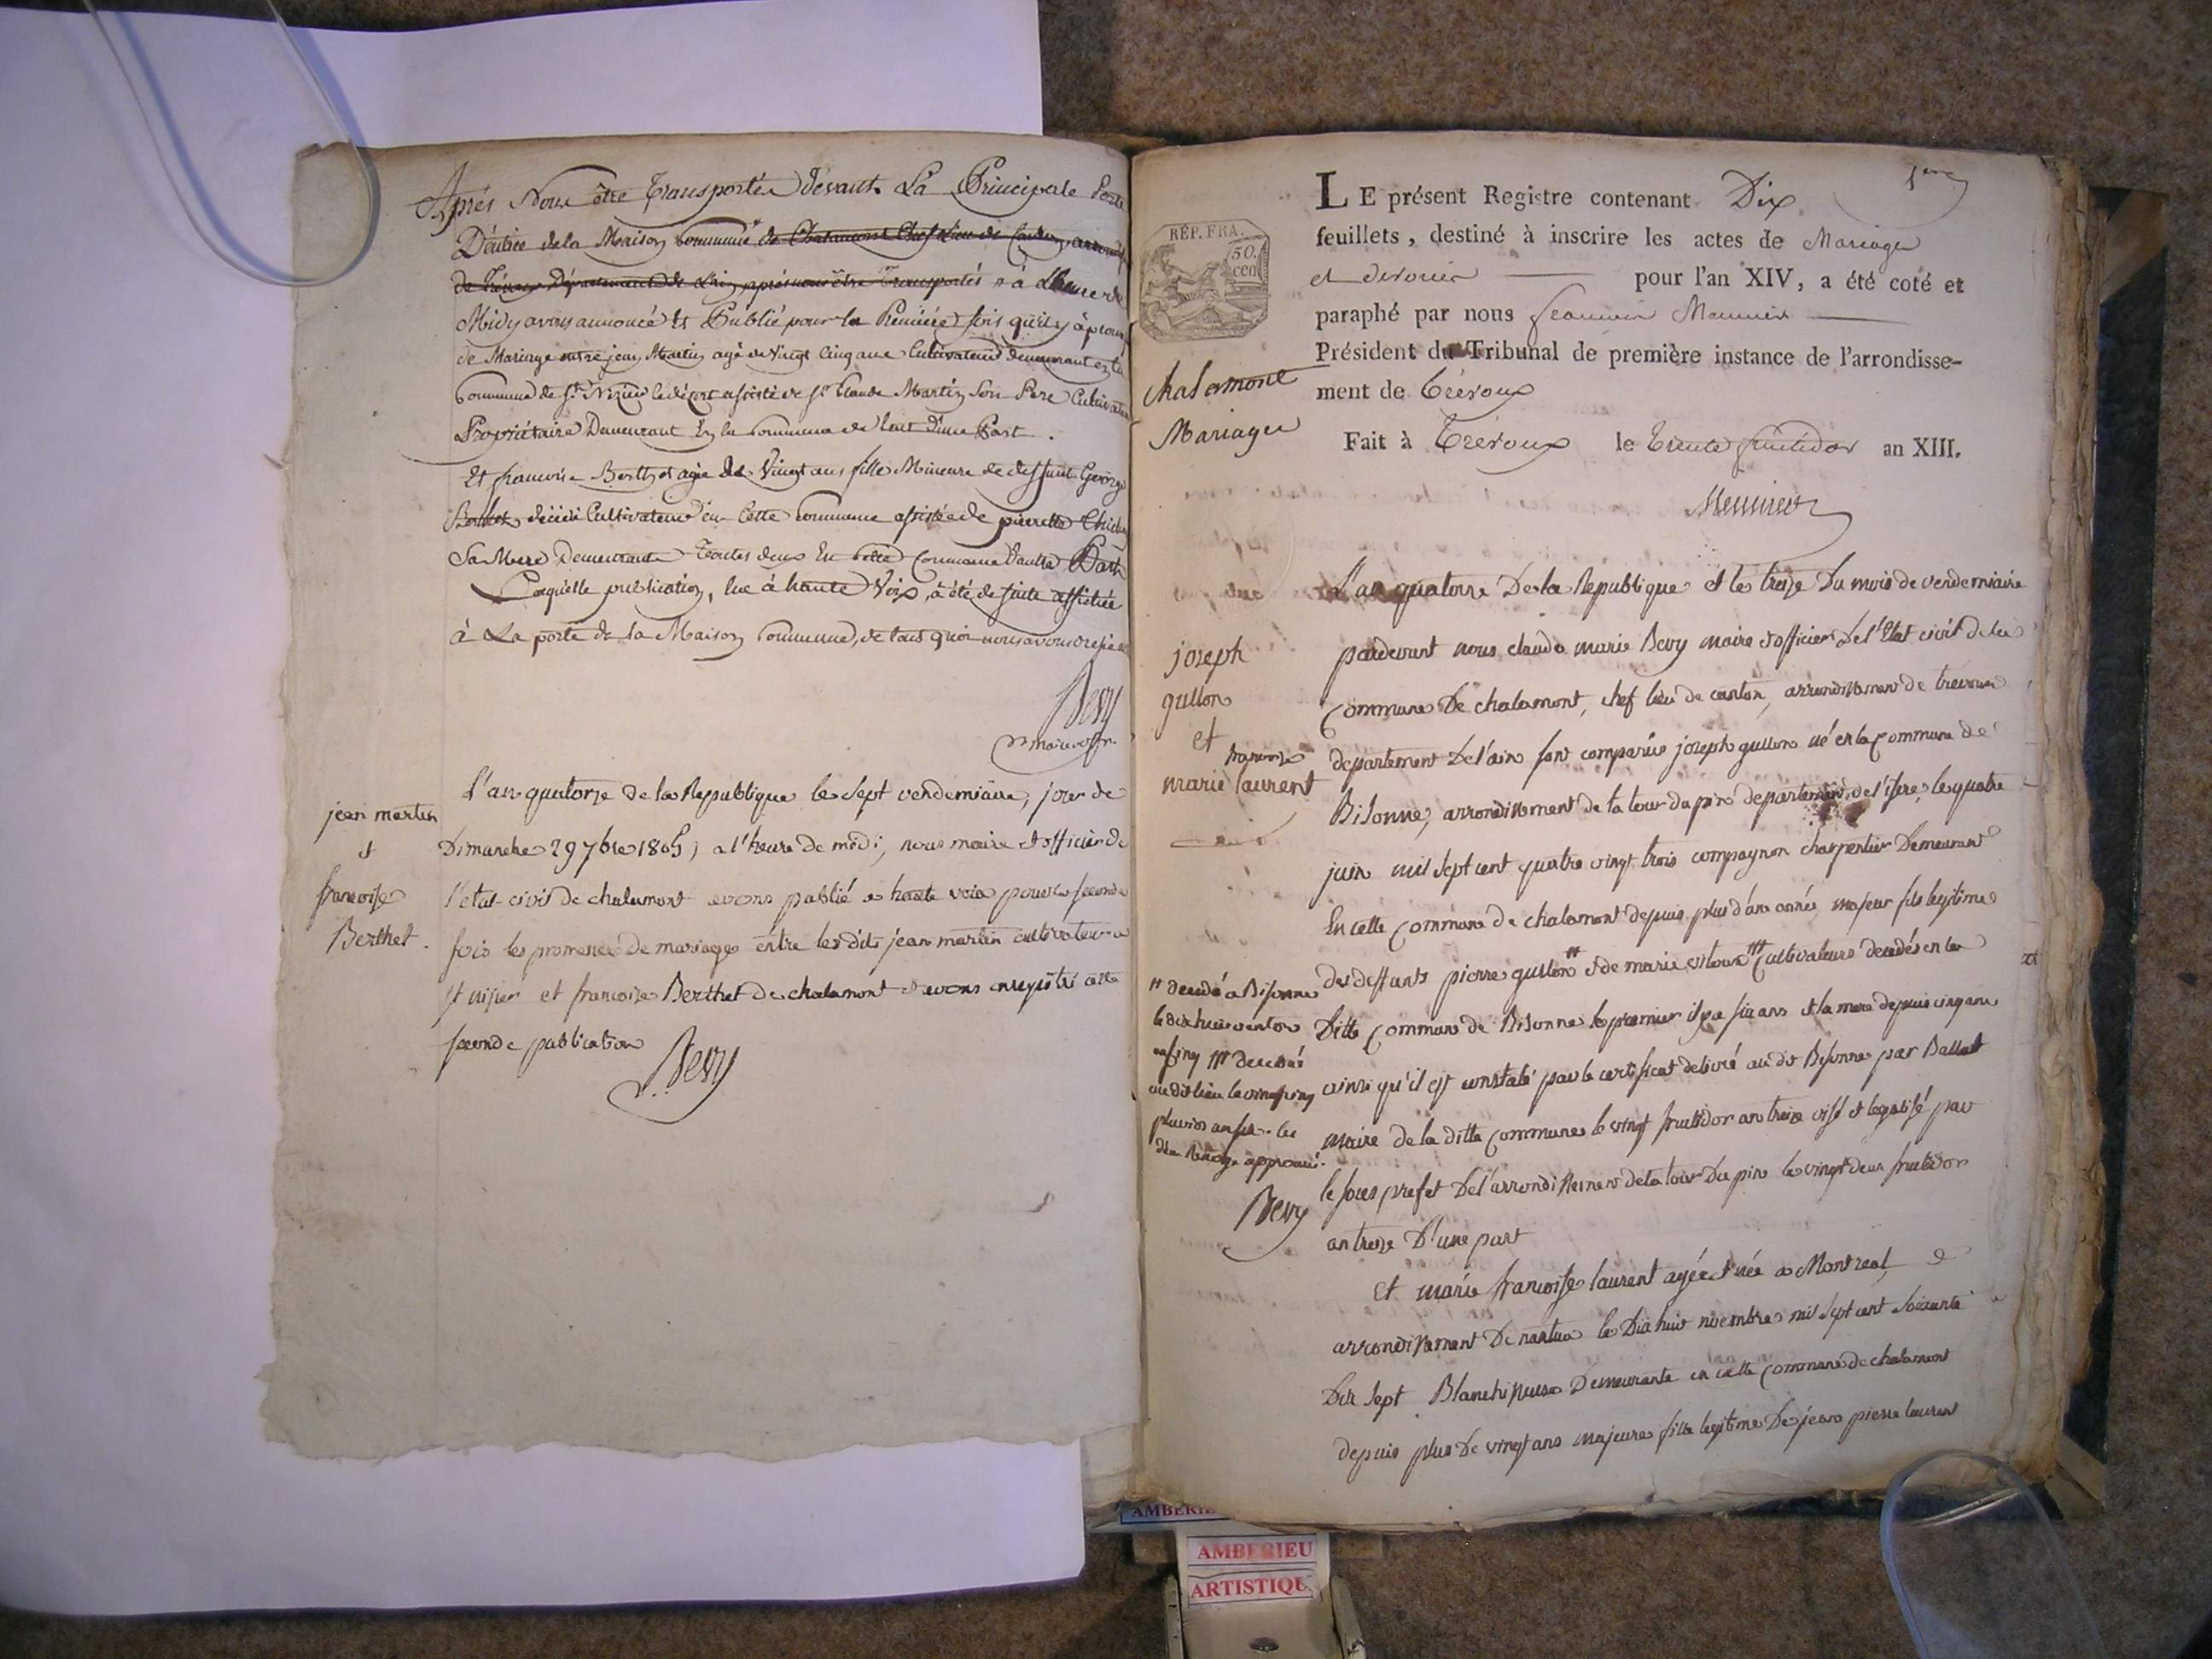 Aprés Nous être Transportés devant La Principale Porte
D'entrée de la Maison Commune de Chalamont Chef lieu de Canton
de Trévoux Département de L'ain après nous être Transportés à L'heure de
Midy avons annoncé et Publié pour la Premiére fois qu'il y à
de Mariage entre jean Martin agé de Vingt Cinq ans Cultivateur demeurant en la
Commune de St. Nizier le désert assisté de Sr. Claude Martin Son Pere Cultivateur
Propriétaire Demeurant En la Commune de D'une Part.
Et françoise Berthet agée de Vingt ans fille Mineure de deffunt George
Berthet décédé Cultivateur en Cette Commune assistée de pierrette
Sa Mere Demeurante Toutes deux En Cette Commune D'autre Part
Laquelle publication, lue à haute Voix, à été de suite affichée
à La porte de la Maison Commune, de tout quoi nous avons
Bevy
maire
jean martin
et
francoise
Berthet.
L'an quatorze de la Republique le sept vendemiaire, jour de
Dimanche 29 7bre 1805, a l'heure de midi, nous maire et officier de
l'etat civil de chalamont avons publié a haute voix pour la seconde
fois les promesses de mariage entre les dits jean martin cultivateur a
st nisier et francoise Berthet de chalamont et avons enregistré cette
seconde publication
Bevy
1ere
REP. FRA.
50.
cen
LE présent Registre contenant Dix
feuillets, destiné à inscrire les actes de Mariage
et divorce pour l'an XIV, a été coté et
paraphé par nous Meunier
Président du Tribunal de première instance de l'arrondisse-
ment de Trévoux
Fait à Trévoux le trente fructidor an XIII.
Meunier
Chalamont
Mariages
joseph
gullon
et
francoise
marie laurent
L'an quatorze De la Republique et le treize Du mois de vendemiaire
pardevant nous claude marie Bevy maire et officier De l'Etat civil de la
Commune De chalamont, chef lieu de canton, arrondissement de trevoux
departement De l'ain sont comparus joseph gullon né en la Commune de
Bisonne, arrondissement de la tour du pin departement de l'isere, le quatre
juin mil sept cent quatre vingt trois compagnon charpentier Demeurant
En cette Commune de chalamont depuis plus d'un année, majeur fils legitime
des deffunts pierre gullon # et de marie Cultivateurs decedés en la
Ditte Commune de Bisonne le premier il y a six ans et la mere depuis cinq ans
ainsi qu'il est constaté par le certificat delivré au dit Bisonne par Ballet
maire de la ditte Commune le vingt fructidor an treize visé et legalisé par
le sous prefet De l'arrondissement de la tour Du pin le vingt deux fructidor
an treize D'une part
# decedé a Bisonne
le dix huit ventose
an cinq decedée
au dit lieu le vingt cinq
pluviose an six. les
deux renvoye approuvé.
Bevy
Et marie francoise laurent agée et née a Montreal
arrondissement De nantua le Dix huit novembre mil sept cent soixante
Dix sept Blanchisseuse Demeurante en cette Commune de chalamont
depuis plus De vingt ans majeure fille legitime De jean pierre laurent
AMBERIEU
AMBERIEU
ARTISTIQU